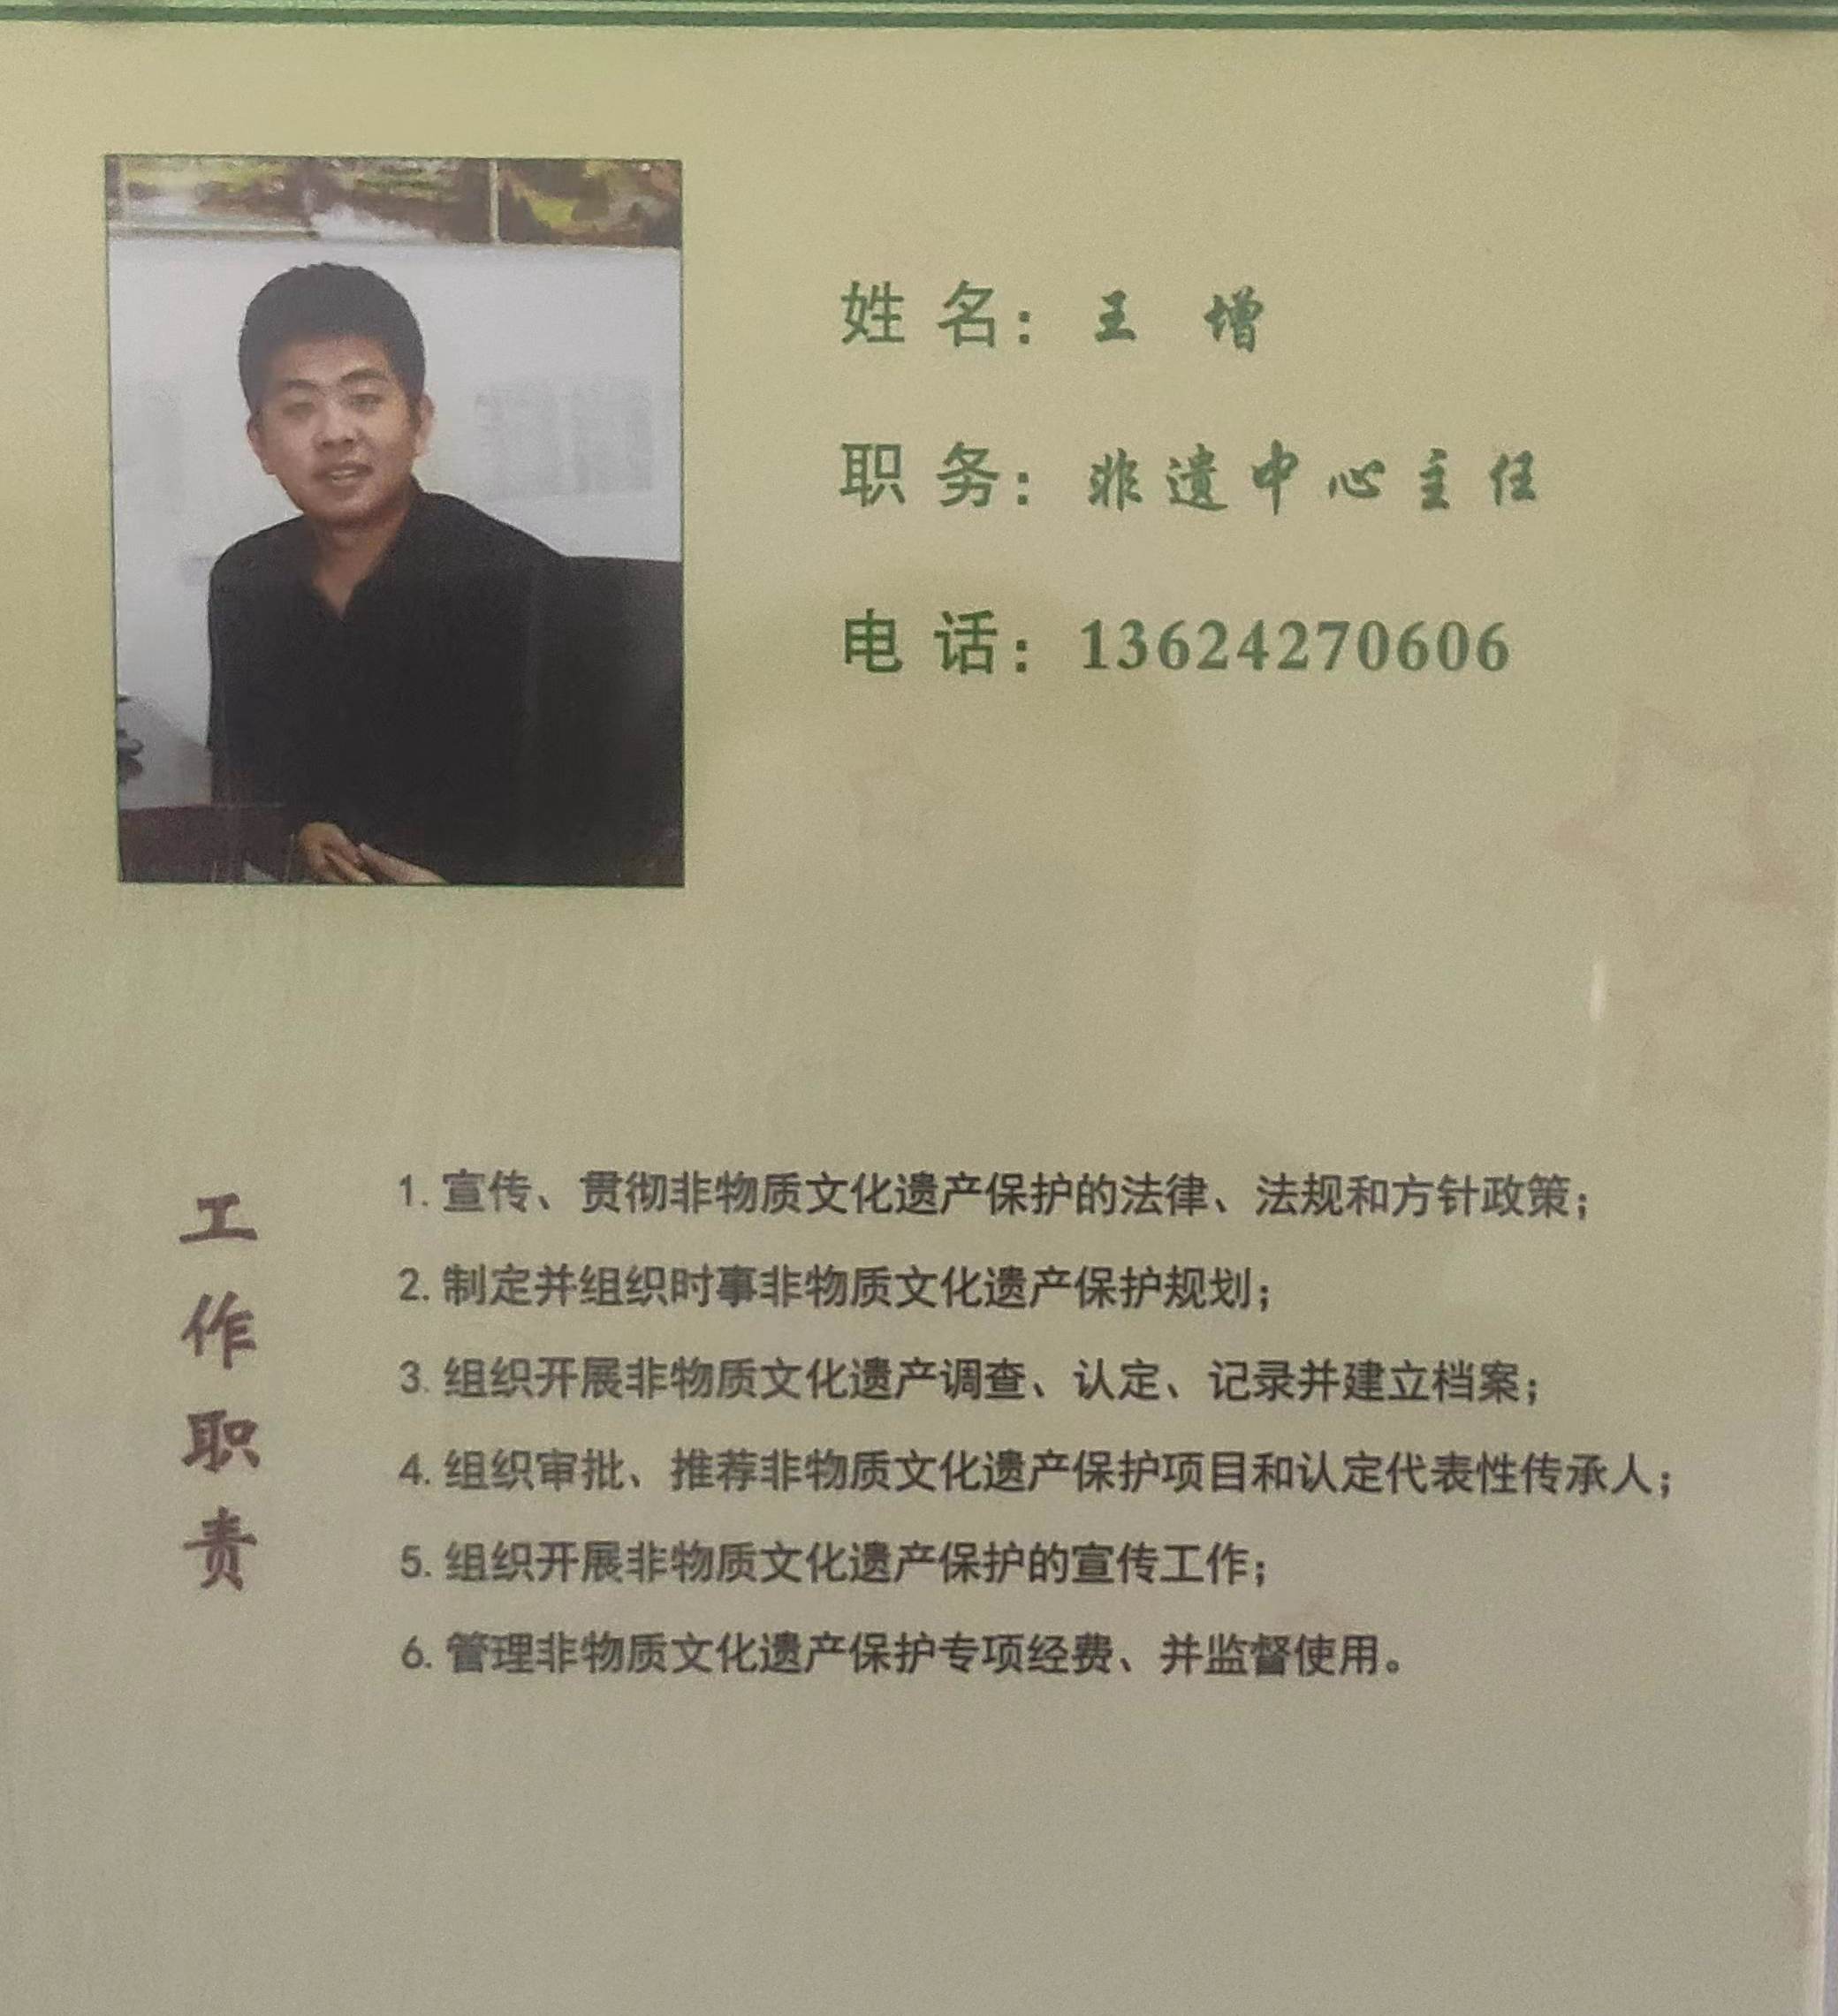 姓 名：王 增
职 务：非遗中心主任
电 话：13624270606
工作职责
1. 宣传、贯彻非物质文化遗产保护的法律、法规和方针政策；
2. 制定并组织时事非物质文化遗产保护规划；
3. 组织开展非物质文化遗产调查、认定、记录并建立档案；
4. 组织审批、推荐非物质文化遗产保护项目和认定代表性传承人；
5. 组织开展非物质文化遗产保护的宣传工作；
6. 管理非物质文化遗产保护专项经费、并监督使用。